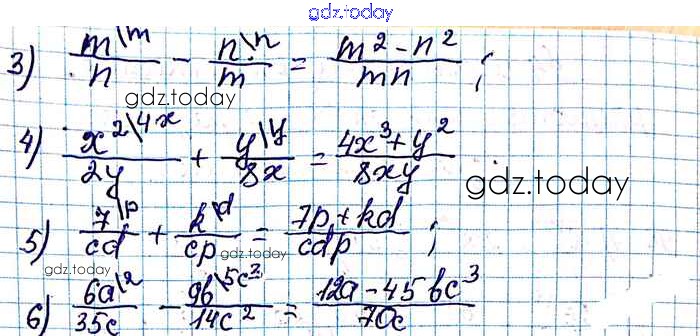 gdz.today
3) m\m/n - n\n/m = m²-n²/mn ;
gdz.today
4) x²\4x/2y + y\y/8x = 4x³+y²/8xy
gdz.today
5) 7\p/cd + k\d/cp = 7p+kd/cdp ;
gdz.today
gdz.today
6) 6a\2/35c - 9b\5c²/14c² = 12a-45bc³/70c